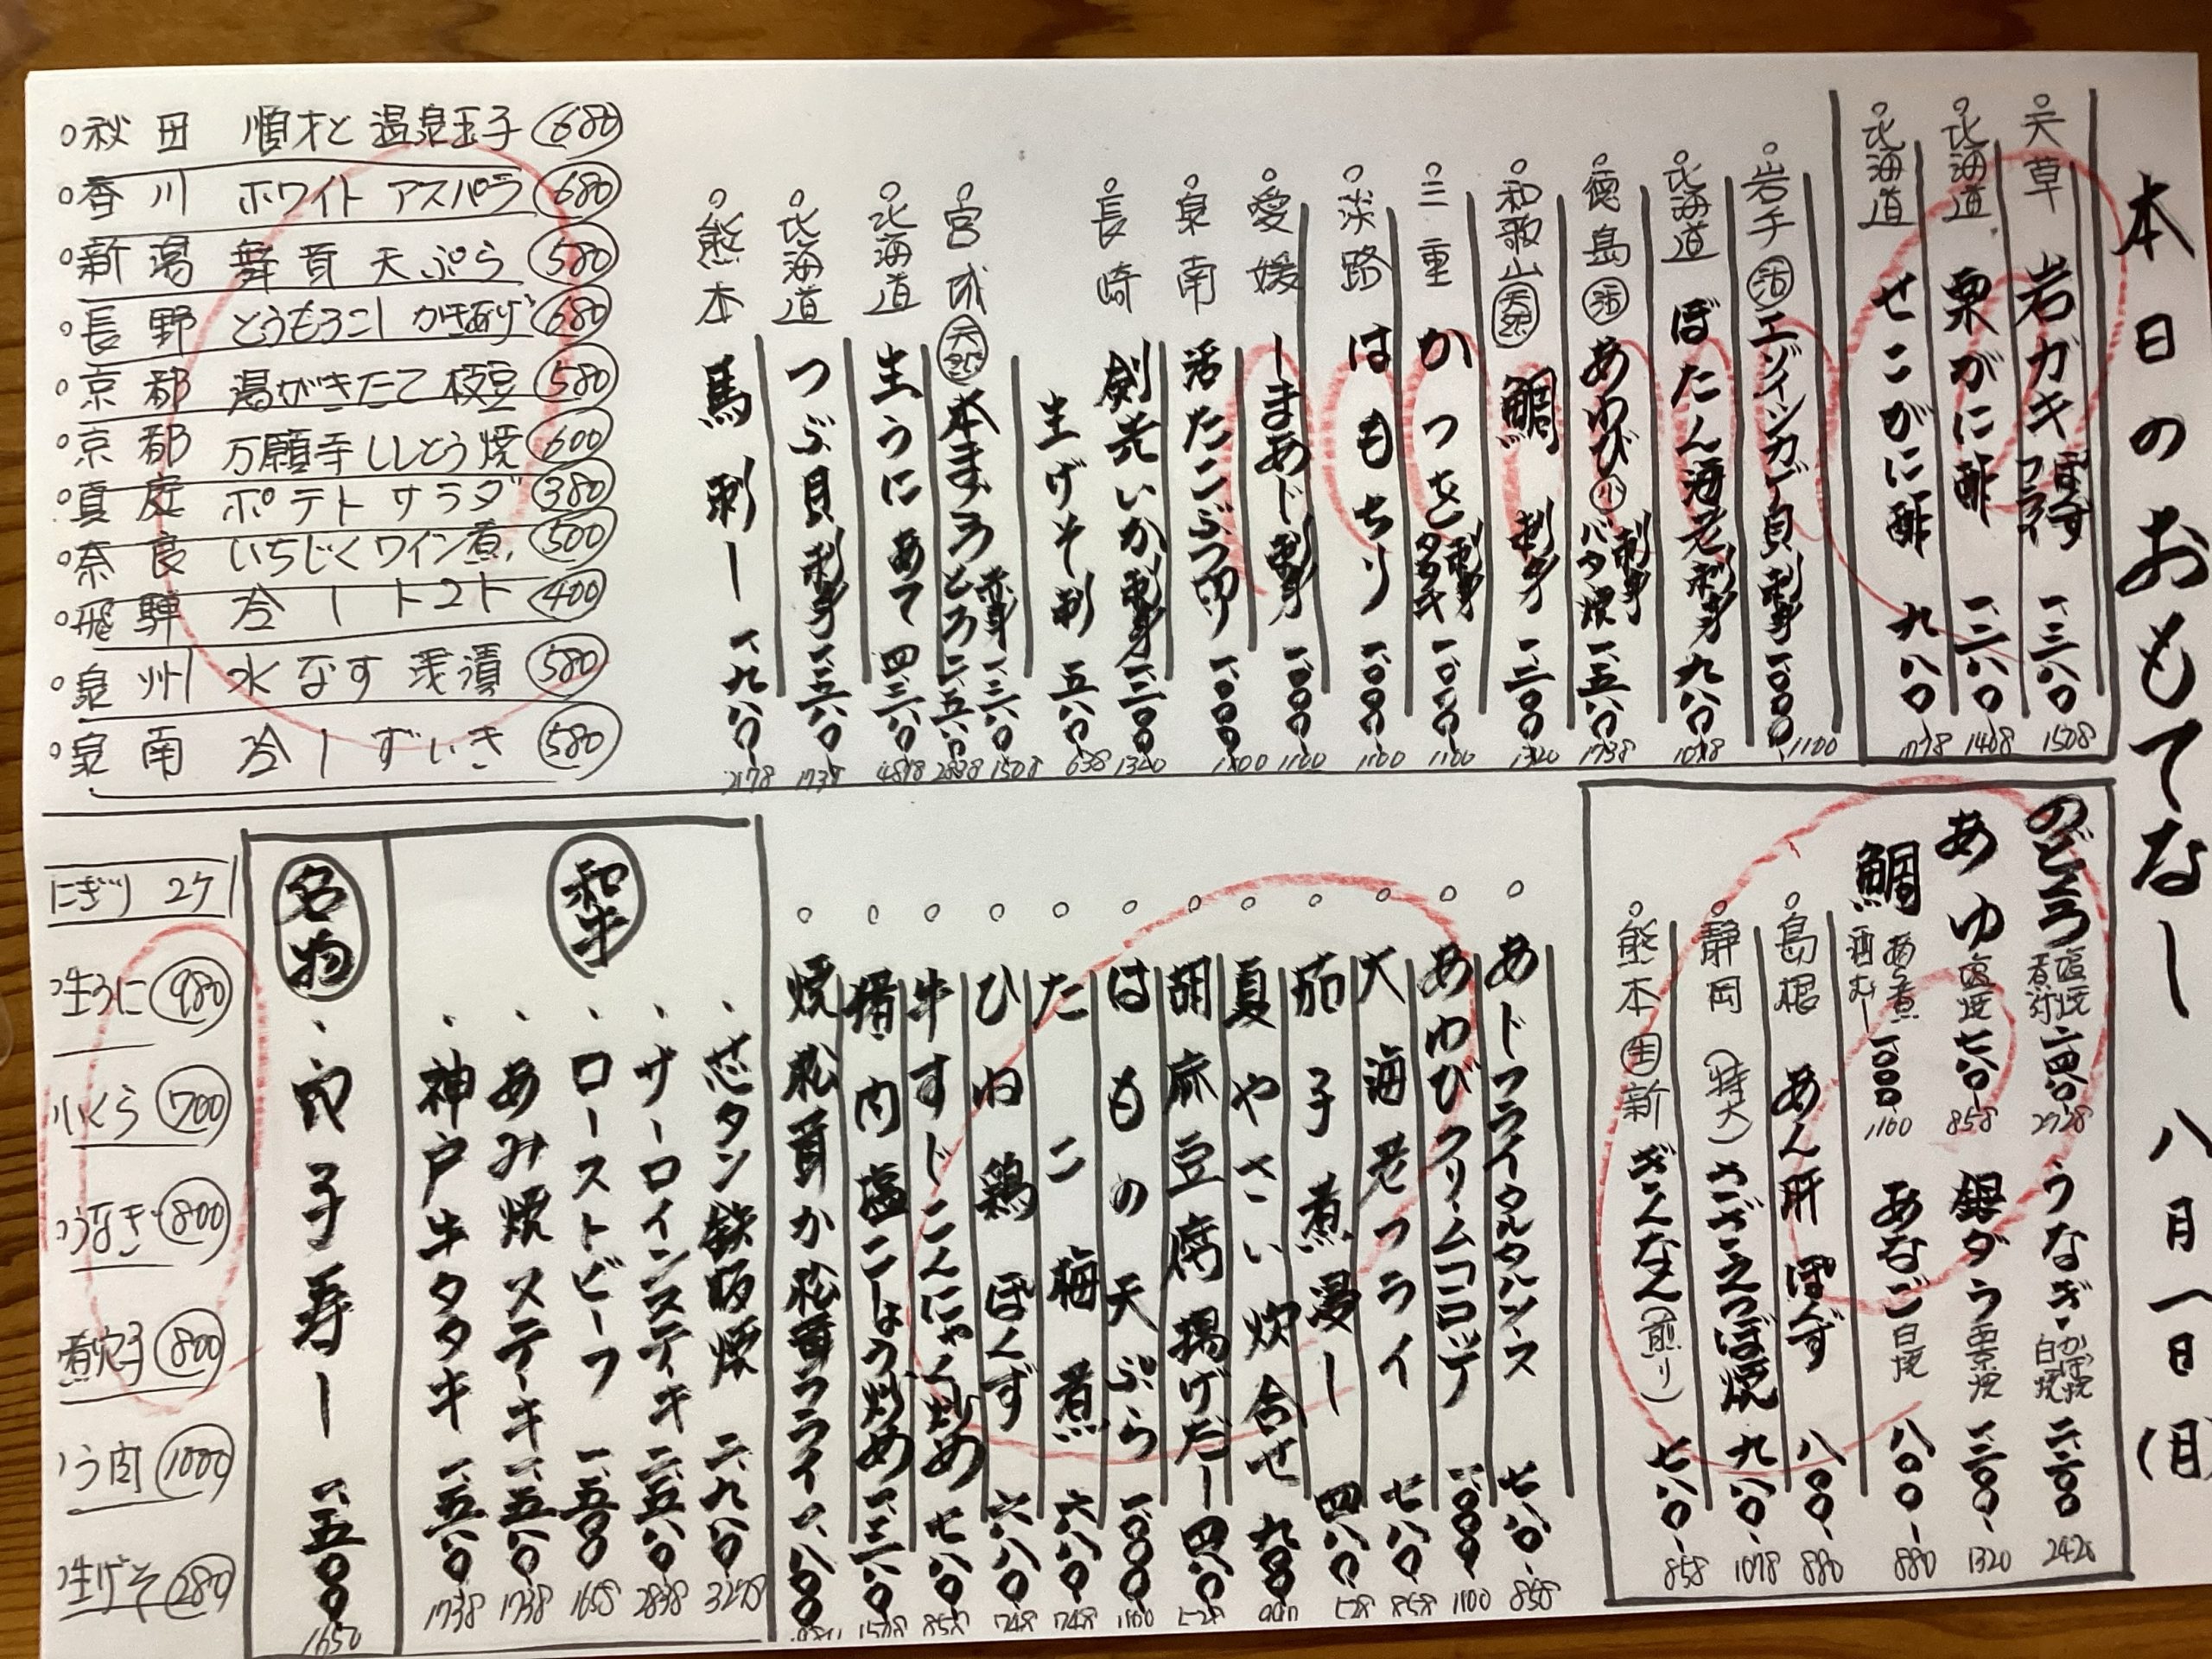 本日のおもてなし 八月一日(月)
天草 岩ガキ ぽんず フライ 一、三八〇 1508
北海道 栗がに酢 一、二八〇 1408
北海道 せこがに酢 九八〇 1078
岩手 活 エゾイシカゲ貝 刺身 一、〇〇〇 1100
北海道 ぼたん海老 刺身 九八〇 1078
徳島 活 あわび 小 刺身 バタ焼 一、五八〇 1738
和歌山 天然 鯛 刺身 一、二〇〇 1320
三重 かつを 刺身 タタキ 一、〇〇〇 1100
淡路 はもちり 一、〇〇〇 1100
愛媛 しまあじ 刺身 一、〇〇〇 1100
泉南 活たこぶつ切り 一、〇〇〇 1100
長崎 剣先いか 刺身 一、二〇〇 1320
生げそ刺 五八〇 638
宮城 天然 本まぐろ 赤身 一、三八〇 1508 とろ 二、五八〇 2838
北海道 生うに あて 四、三八〇 4818
北海道 つぶ貝 刺身 一、五八〇 1738
熊本 馬刺し 一、九八〇 2178
秋田 順才と温泉玉子 680
香川 ホワイトアスパラ 680
新潟 舞茸天ぷら 580
長野 とうもろこし かきあげ 680
京都 湯がきたて枝豆 580
京都 万願寺ししとう焼 600
真庭 ポテトサラダ 380
奈良 いちじくワイン煮 500
飛騨 冷しトマト 400
泉州 水なす 浅漬 580
泉南 冷しずいき 580
のどぐろ 塩焼 煮付 二、四八〇 2728
うなぎ かば焼 白焼 二、二〇〇 2420
あゆ 塩焼 七八〇 858
銀ダラ 西京焼 一、二〇〇 1320
鯛 あら煮 酒むし 一、〇〇〇 1100
あなご 白焼 八〇〇 880
島根 あん肝 ぽんず 八〇〇 880
静岡 (特大) さざえつぼ焼 九八〇 1078
熊本 生 新 ぎんなん (煎り) 七八〇 858
あじフライタルタルソース 七八〇 858
あわびクリームコロッケ 一、〇〇〇 1100
大海老フライ 七八〇 858
茄子煮浸し 四八〇 528
夏やさい炊合せ 九〇〇
胡麻豆腐揚げだし 四八〇 528
はもの天ぷら 一、〇〇〇 1100
たこ梅煮 六八〇 748
ひね鶏ぽんず 六八〇 748
牛すじこんにゃく炒め 七八〇 858
猪肉塩こしょう炒め 一、三八〇 1508
焼松茸か松茸フライ 一、八〇〇
和牛
芯タン鉄板焼 二、九八〇 3278
サーロインステーキ 二、五八〇 2838
ローストビーフ 一、五〇〇 1658
あみ焼ステーキ 一、五八〇 1738
神戸牛タタキ 一、五八〇 1738
名物
穴子寿し 一、五〇〇 1650
にぎり 2ケ
生うに 980
いくら 700
うなぎ 800
煮穴子 800
う肉 1000
生げそ 280